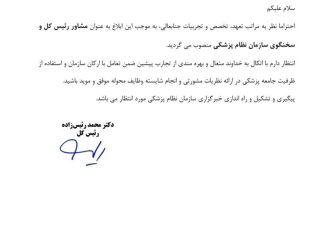 سلام علیکم
احتراما نظر به مراتب تعهد، تخصص و تجربیات جنابعالی، به موجب این ابلاغ به عنوان مشاور رئیس کل و
سخنگوی سازمان نظام پزشکی منصوب می گردید.
انتظار دارم با اتکال به خداوند متعال و بهره مندی از تجارب پیشین ضمن تعامل با ارکان سازمان و استفاده از
ظرفیت جامعه پزشکی در ارائه نظریات مشورتی و انجام شایسته وظایف محوله موفق و موید باشید.
پیگیری و تشکیل و راه اندازی خبرگزاری سازمان نظام پزشکی مورد انتظار می باشد.
دکتر محمد رئیس‌زاده
رئیس کل